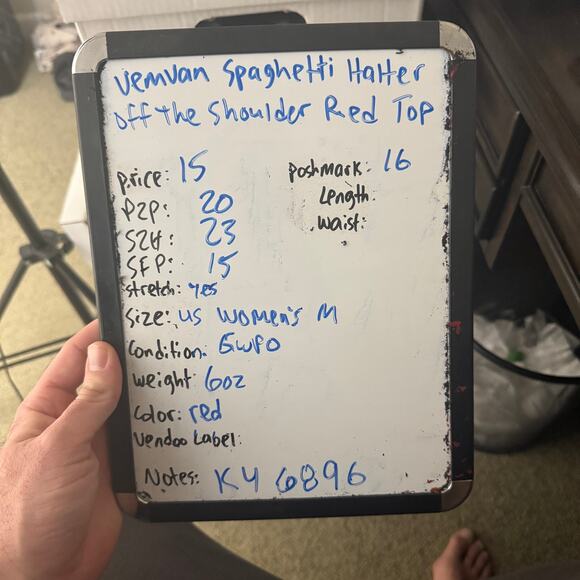 Vemvan Spaghetti Halter
off the Shoulder Red Top
price: 15
poshmark: 16
P2P: 20
Length:
S2H: 23
waist:
SFP: 15
stretch: yes
Size: US Women's M
Condition: EWPO
weight: 6oz
Color: red
Vendoo Label:
Notes: K4 6896